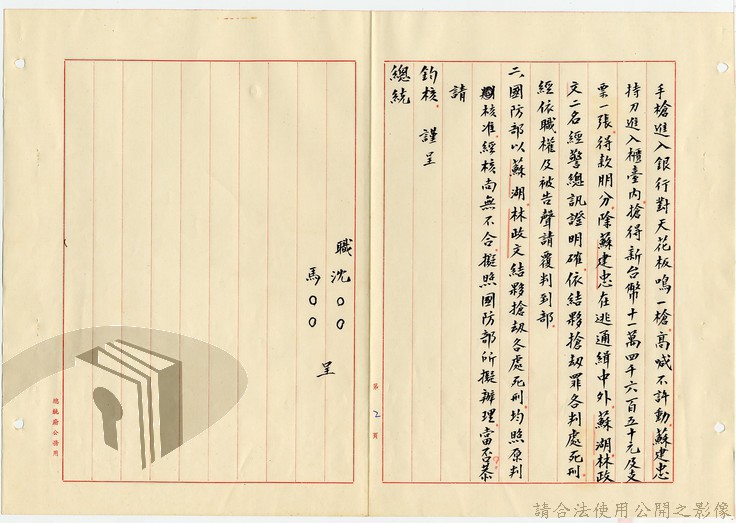 手槍進入銀行對天花板鳴一槍高喊不許動蘇建忠
持刀進入櫃臺內搶得新台幣十一萬四千六百五十元及支
票一張得款朋分除蘇建忠在逃通緝中外蘇湖林政
文二名經警總訊證明確依結夥搶劫罪各判處死刑
經依職權及被告聲請覆判到部
二、國防部以蘇湖林政文結夥搶劫各處死刑均照原判
核准經核尚無不合擬照國防部所擬辦理當否恭
請
鈞核 謹呈
總統
職 沈〇〇
馬〇〇 呈
第 2 頁
總統府公務用
請合法使用公開之影像